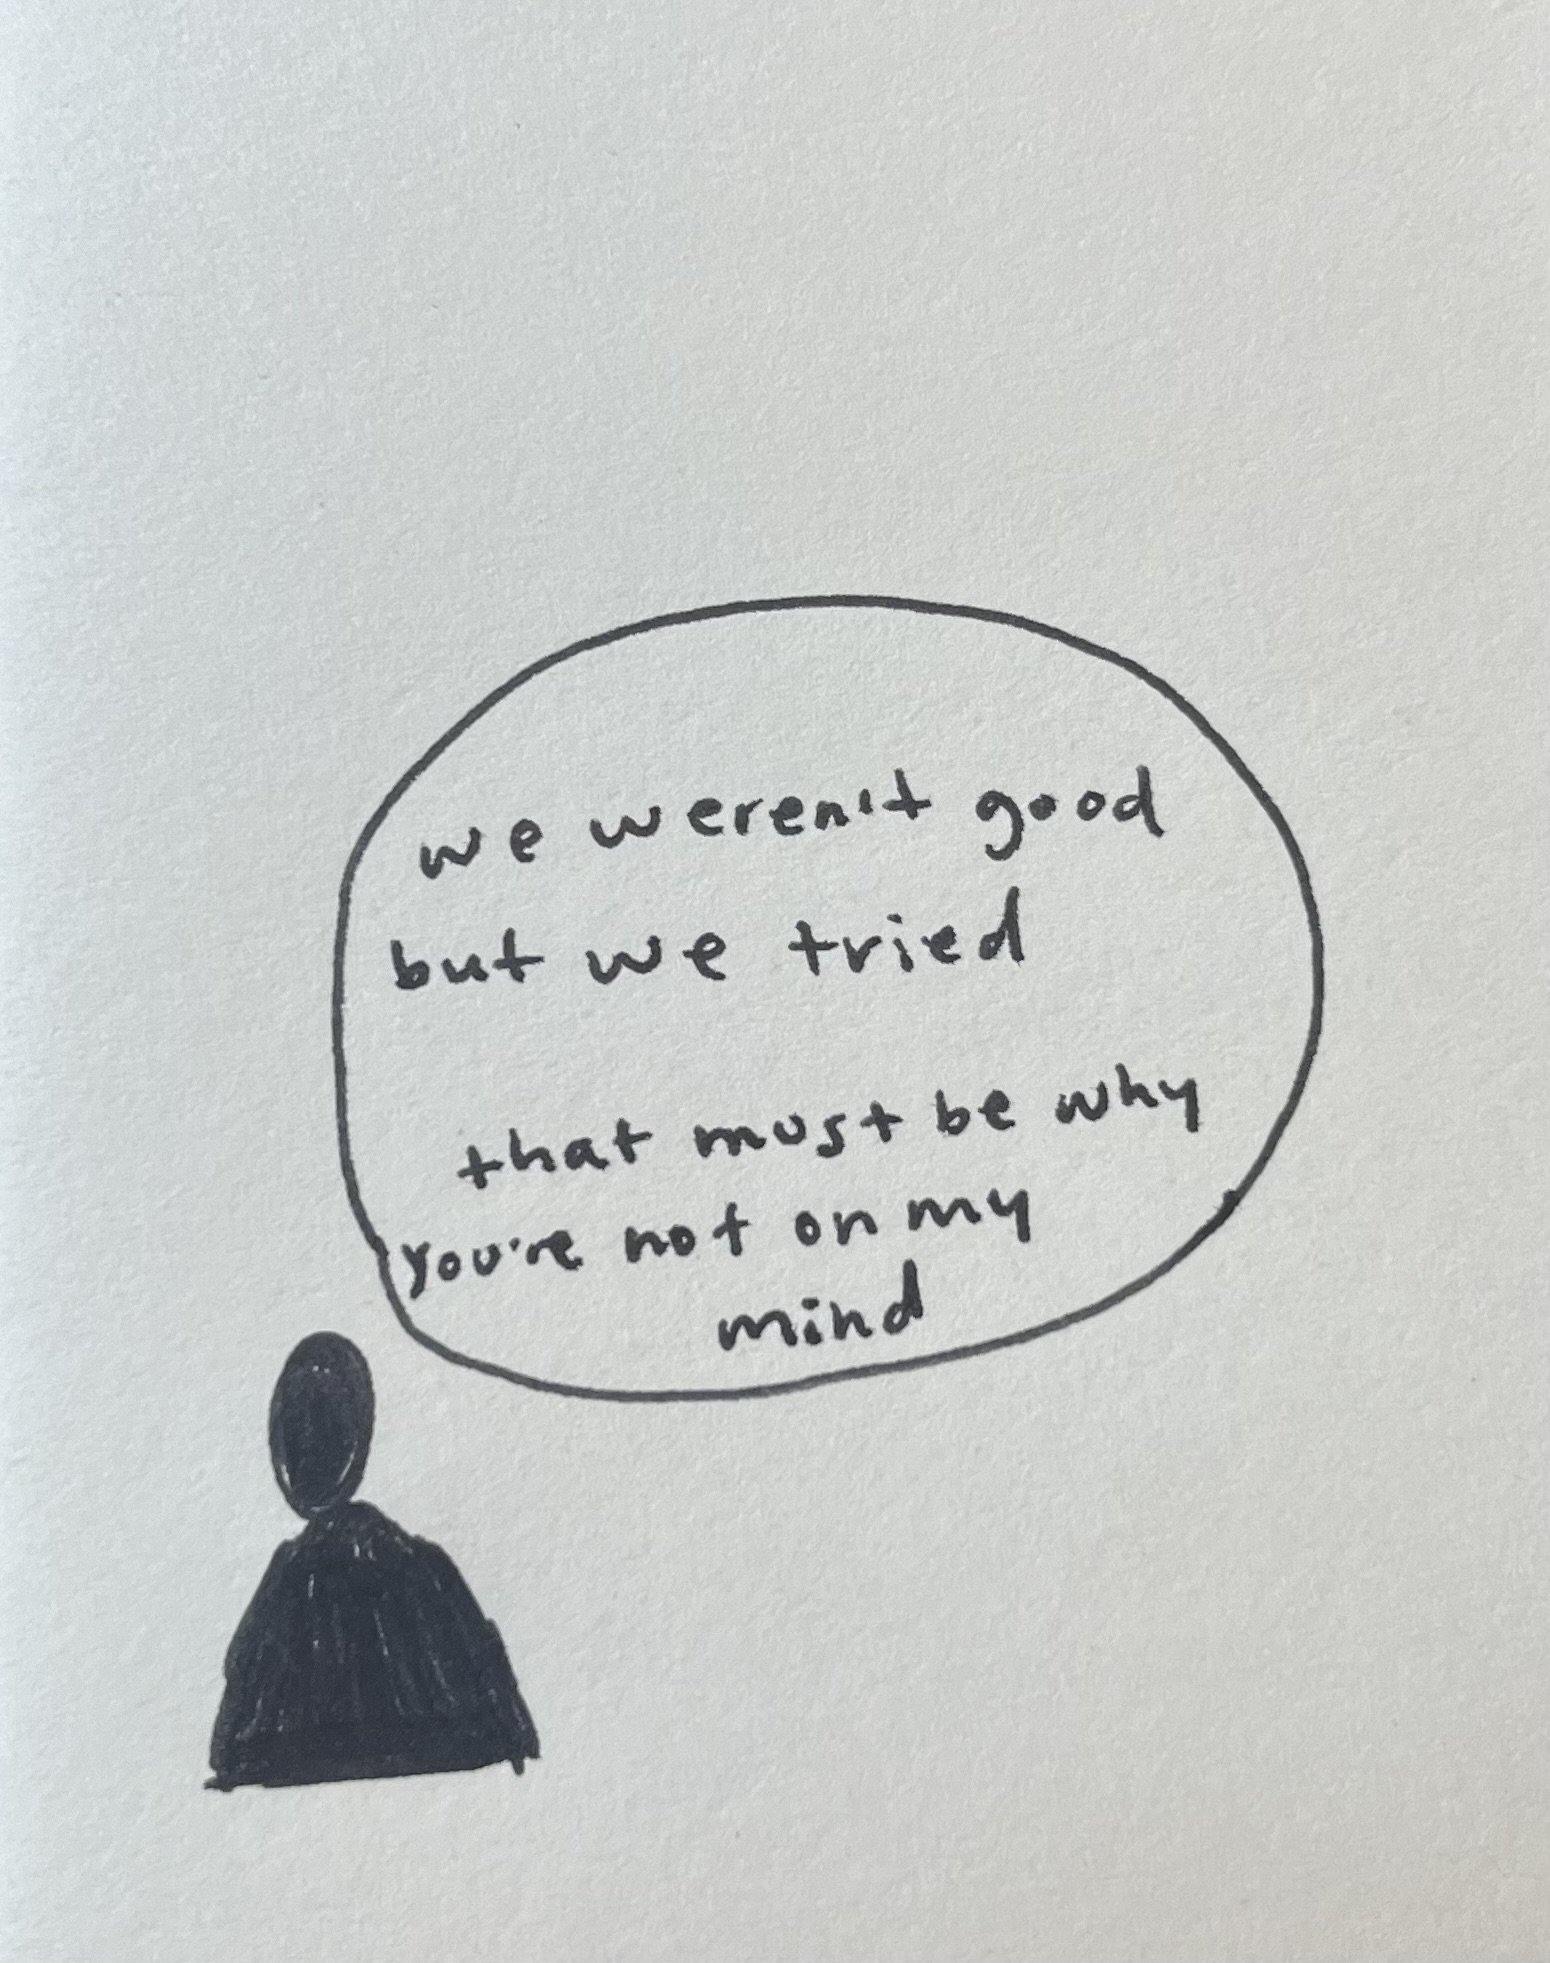 we weren't good
but we tried
that must be why
you're not on my
mind